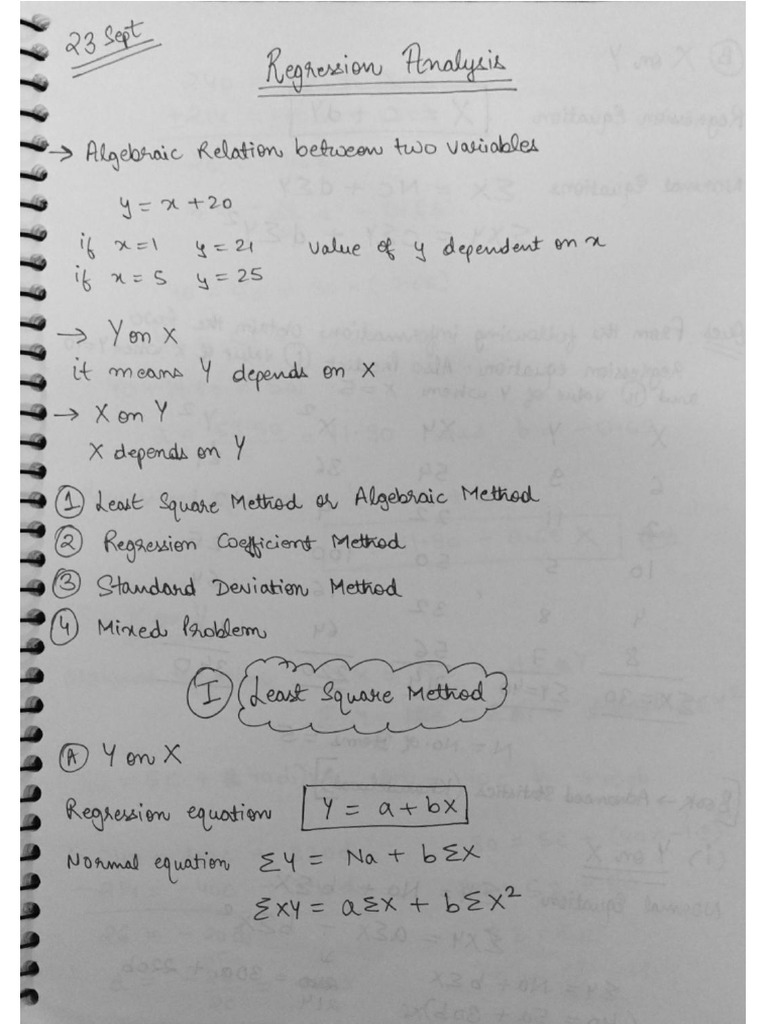 23 Sept
Regression Analysis
→ Algebraic Relation between two variables
y = x + 20
if x = 1 y = 21 value of y dependent on x
if x = 5 y = 25
→ Y on X
it means Y depends on X
→ X on Y
X depends on Y
① Least Square Method or Algebraic Method
② Regression Coefficient Method
③ Standard Deviation Method
④ Mixed Problem
Ⓘ Least Square Method
Ⓐ Y on X
Regression equation Y = a + bx
Normal equation ΣY = Na + bΣX
ΣXY = aΣX + bΣX²